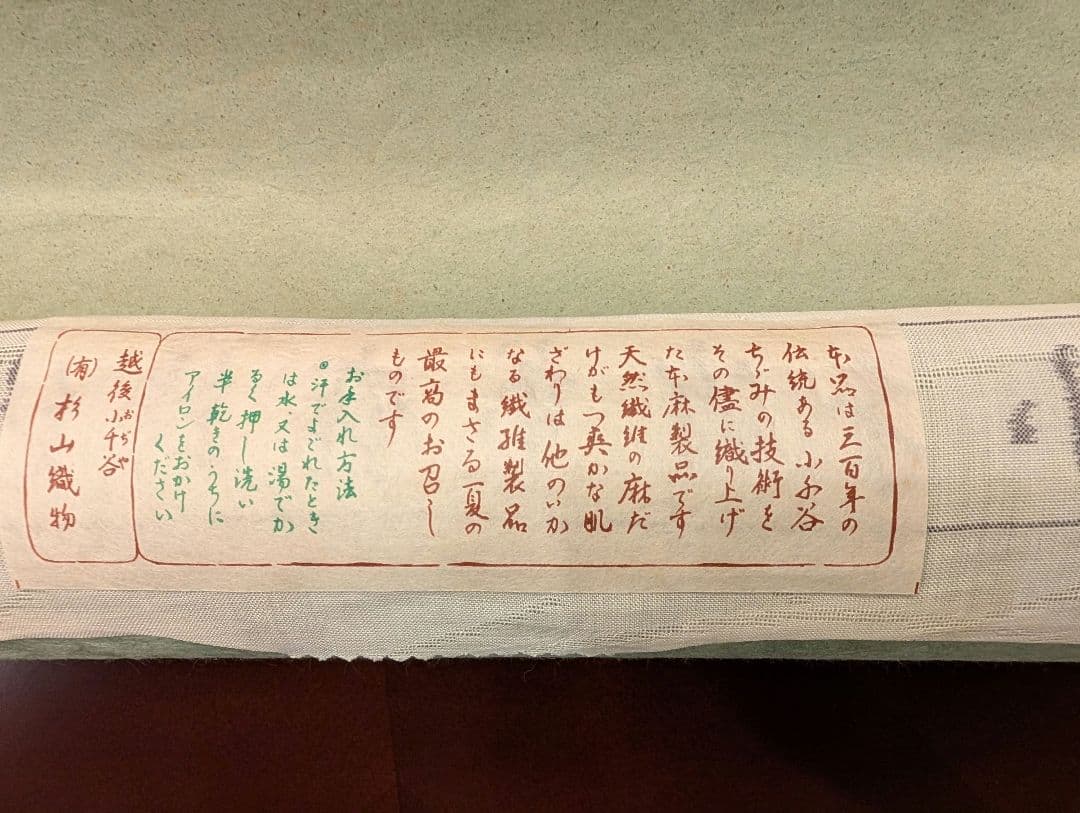 本品は三百年の
伝統ある小千谷
ちゞみの技術を
その儘に織り上げ
た本麻製品です
天然繊維の麻だ
けがもつ爽かな肌
ざわりは他のいか
なる繊維製品
にもまさる夏の
最高のお召し
ものです
お手入れ方法
◎汗でよごれたとき
は水、又は湯でか
るく押し洗い
半乾きのうちに
アイロンをおかけ
ください
越後小千谷
おぢや
(有)杉山織物